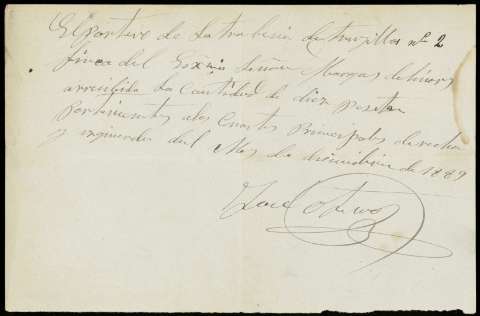 El portero de la trabesia de trujillos nº 2
finca del Exmo Señor Marques de
arrecibido la Cantidad de diez pesetas
Pertenecientes a los Cuartos Principales derecha
y izquierda del Mes de diciembre de 1889
José